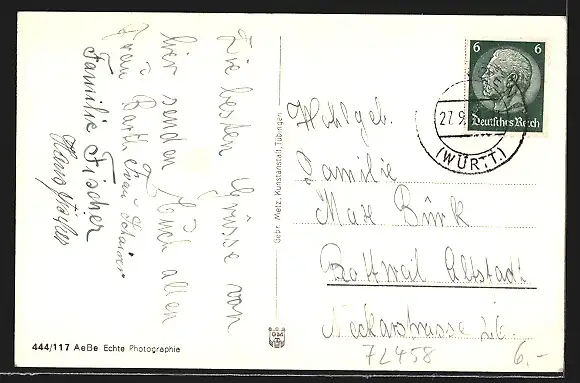 Die besten Grüsse von
hier senden Euch allen
Frau Barth Frau Schairer
Familie Fischer
Hans Fischer
444/117 AeBe Echte Photographie
Gebr. Metz, Kunstanstalt, Tübingen
6 6
Deutsches Reich
27.9.
(WÜRTT.)
Wohlgeb.
Familie
Max Bürk
Rottweil Altstadt
Neckarstrasse 26.
72458
6.-